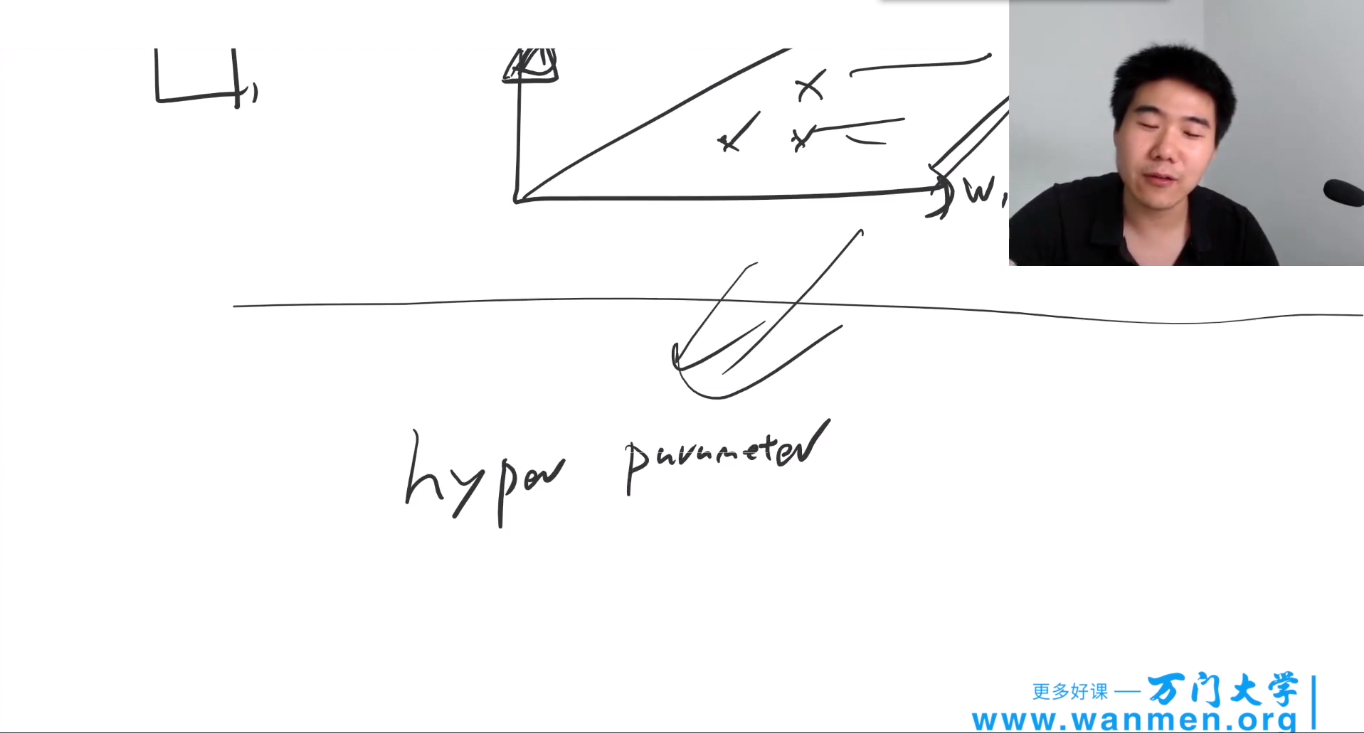 w₁
hyper parameter
更多好课 — 万门大学
www.wanmen.org